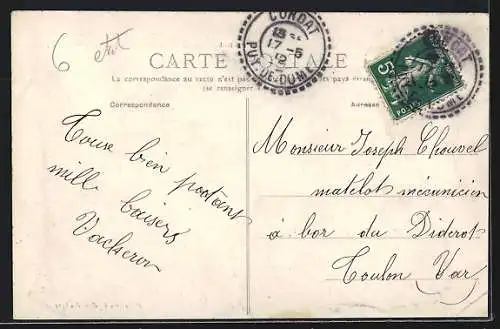 6
CONDAT
17-5
12
PUY-DE-DOME
CARTE POSTALE
La correspondance au recto n'est pas
(se renseigner
Correspondance
Adresse
5
POSTES
Tous bien portant
mille baisers
Vacheron
Monsieur Joseph Chouvel
matelot mécanicien
à bor du Diderot
Toulon (Var)